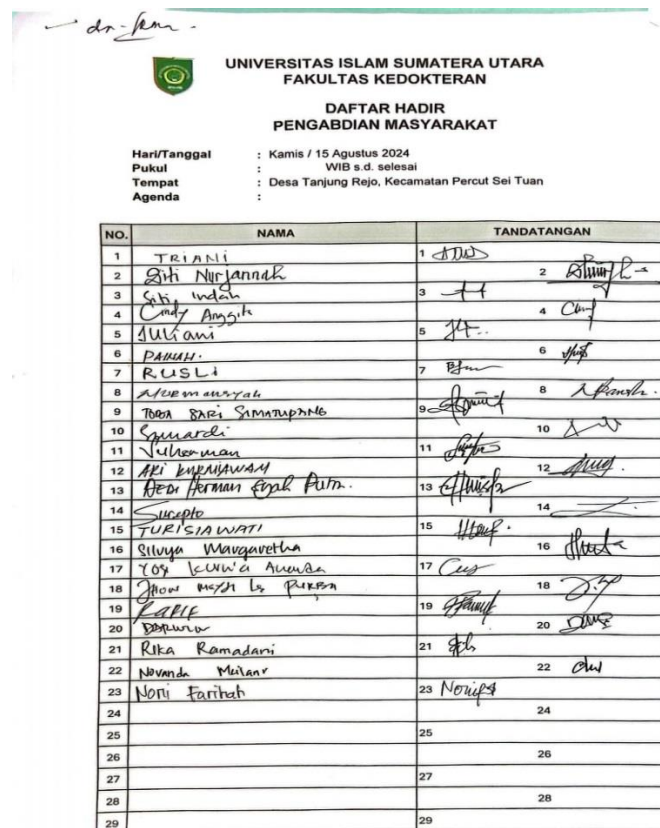 UNIVERSITAS ISLAM SUMATERA UTARA
FAKULTAS KEDOKTERAN
DAFTAR HADIR
PENGABDIAN MASYARAKAT
Hari/Tanggal : Kamis / 15 Agustus 2024
Pukul : WIB s.d. selesai
Tempat : Desa Tanjung Rejo, Kecamatan Percut Sei Tuan
Agenda :
NO. NAMA TANDATANGAN
1 TRIANI 1
2 Siti Nurjannah 2
3 Siti Indah 3
4 Cindy Anggita 4
5 JULiani 5
6 PAINAH. 6
7 RUSLi 7
8 Nurmansyah 8
9 SARI SIMATUPANG 9
10 Sunardi 10
11 Suherman 11
12 ARI KURNIAWAN 12
13 Herman Putra. 13
14 Sucipto 14
15 TURISIAWATI 15
16 Silvya Margaretha 16
17 Yosi Kurnia Ananda 17
18 PURBA 18
19 RAPIF 19
20 DARWIN 20
21 Rika Ramadani 21
22 Novanda Meilani 22
23 Noni Farihah 23
24 24
25 25
26 26
27 27
28 28
29 29